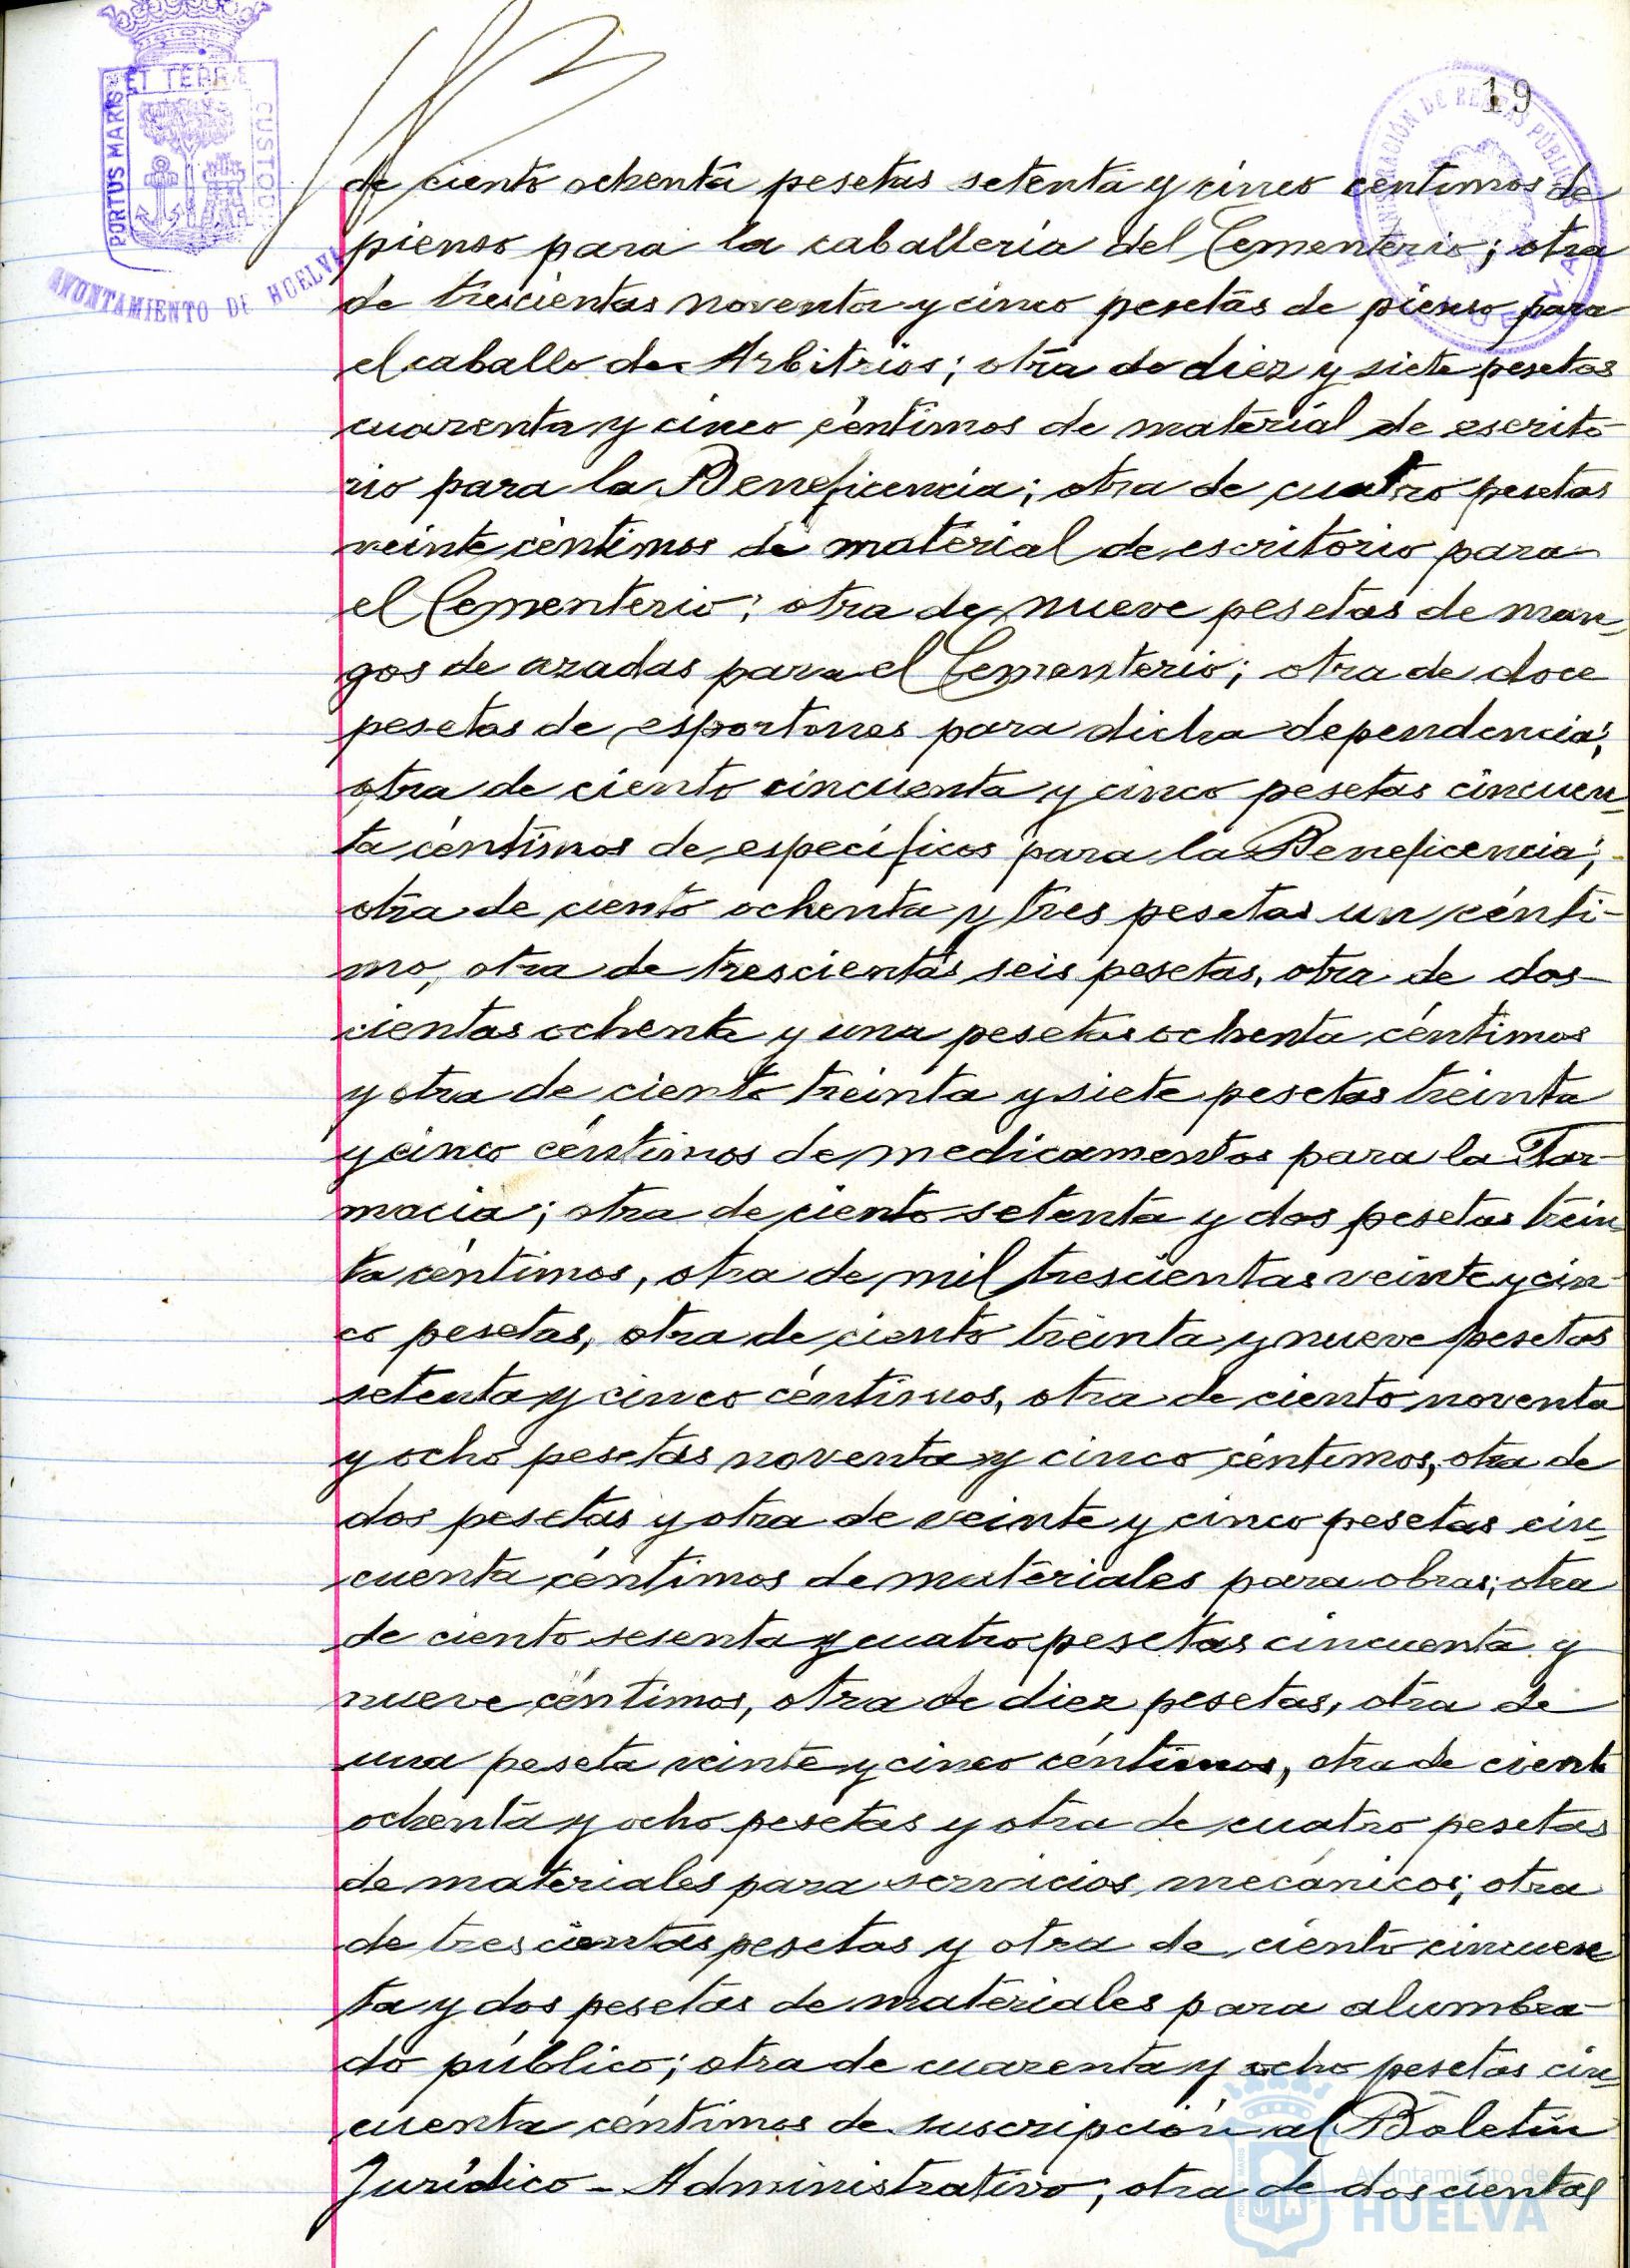 19
PORTUS MARIS ET TERRE CUSTODI
AYUNTAMIENTO DE HUELVA
de ciento ochenta pesetas setenta y cinco centimos de
pienso para la caballeria del Cementerio; otra
de trescientas noventa y cinco pesetas de pienso para
el caballo de Arbitrios; otra de diez y siete pesetas
cuarenta y cinco céntimos de material de escrito-
rio para la Beneficencia; otra de cuatro pesetas
veinte céntimos de material de escritorio para
el Cementerio; otra de nueve pesetas de man-
gos de azadas para el Cementerio; otra de doce
pesetas de esportones para dicha dependencia;
otra de ciento cincuenta y cinco pesetas cincuen-
ta céntimos de específicos para la Beneficencia;
otra de ciento ochenta y tres pesetas un cénti-
mo, otra de trescientas seis pesetas, otra de dos-
cientas ochenta y una pesetas ochenta céntimos
y otra de ciento treinta y siete pesetas treinta
y cinco céntimos de medicamentos para la Far-
macia; otra de ciento setenta y dos pesetas trein-
ta céntimos, otra de mil trescientas veinte y cin-
co pesetas, otra de ciento treinta y nueve pesetas
setenta y cinco céntimos, otra de ciento noventa
y ocho pesetas noventa y cinco céntimos, otra de
dos pesetas y otra de veinte y cinco pesetas cin-
cuenta céntimos de materiales para obras; otra
de ciento sesenta y cuatro pesetas cincuenta y
nueve céntimos, otra de diez pesetas, otra de
una peseta veinte y cinco céntimos, otra de ciento
ochenta y ocho pesetas y otra de cuatro pesetas
de materiales para servicios mecánicos; otra
de trescientas pesetas y otra de ciento cincuen
ta y dos pesetas de materiales para alumbra-
do público; otra de cuarenta y ocho pesetas cin-
cuenta céntimos de suscripción al Boletín
Jurídico-Administrativo; otra de doscientas
Ayuntamiento de
HUELVA